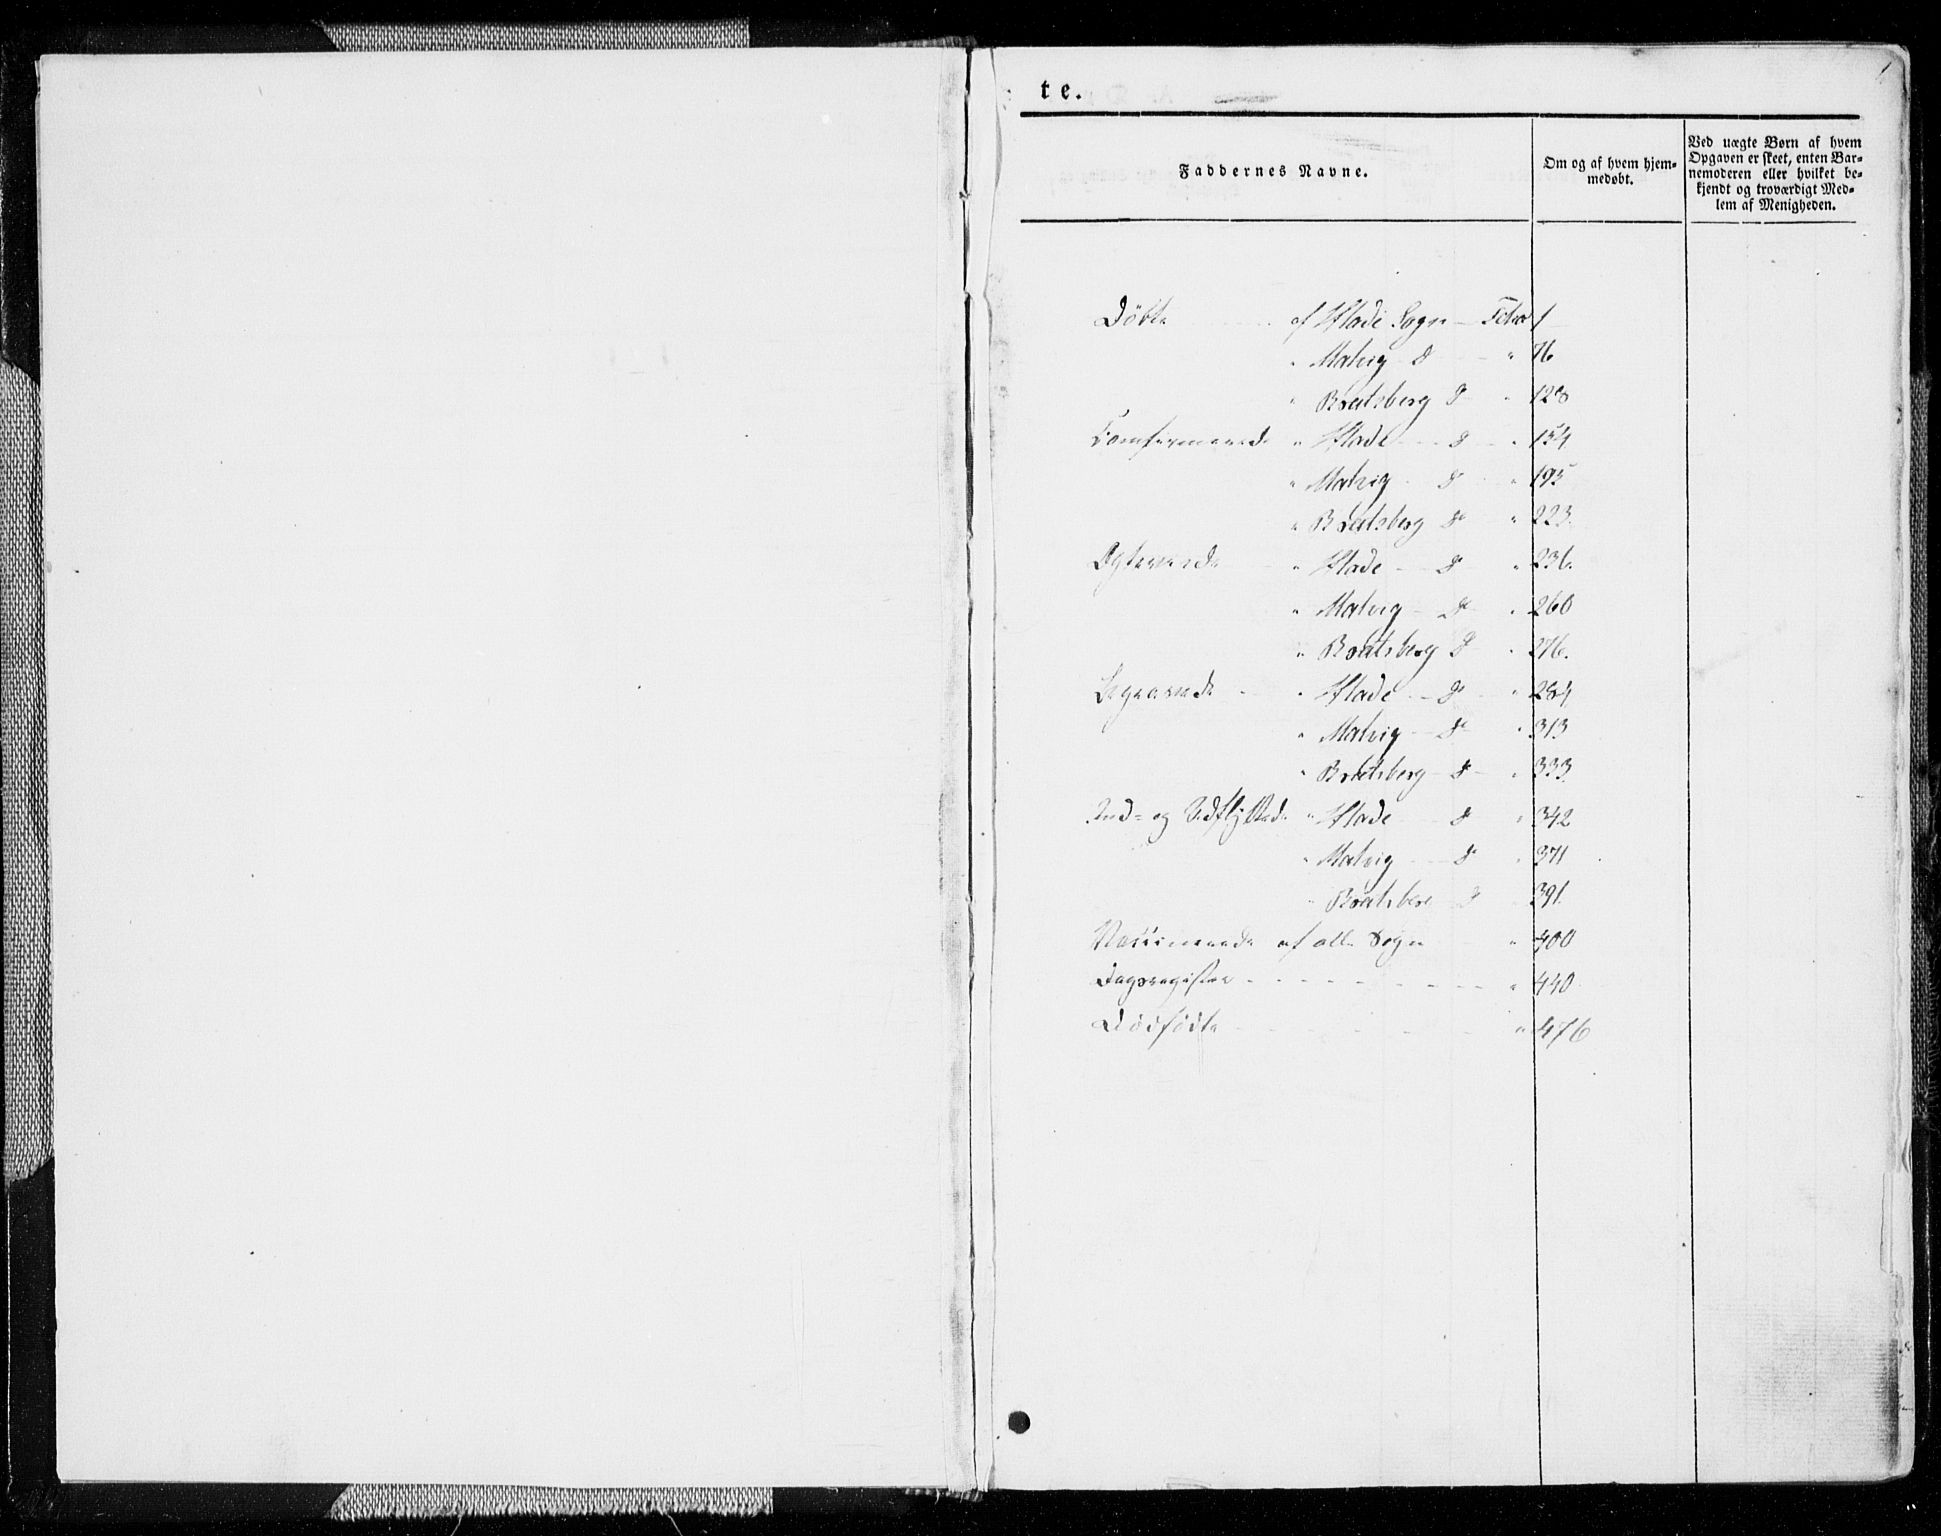 te.
1
Faddernes Navne.
Om og af hvem hjem-
medøbt.
Ved uægte Børn af hvem
Opgaven er skeet, enten Bar-
nemoderen eller hvilket be-
kjendt og troværdigt Med-
lem af Menigheden.
Döbte af Hlade Sogn - Folio 1
" Malvig d " 76
" Bratsberg d " 128
Confirmerede " Hlade d " 154
" Malvig d " 195
" Bratsberg d " 223.
Egteviede " Hlade d " 236.
" Malvig d " 260
" Bratsberg d " 276.
Begravede " Hlade d " 284
" Malvig d " 313
" Bratsberg d " 333
Ind- og Udflyttede " Hlade d " 342
" Malvig d " 371
" Bratsberg d " 391.
Vaccinerede af alle Sogn " 400
Dagsregister " 440
Dödfödte " 476